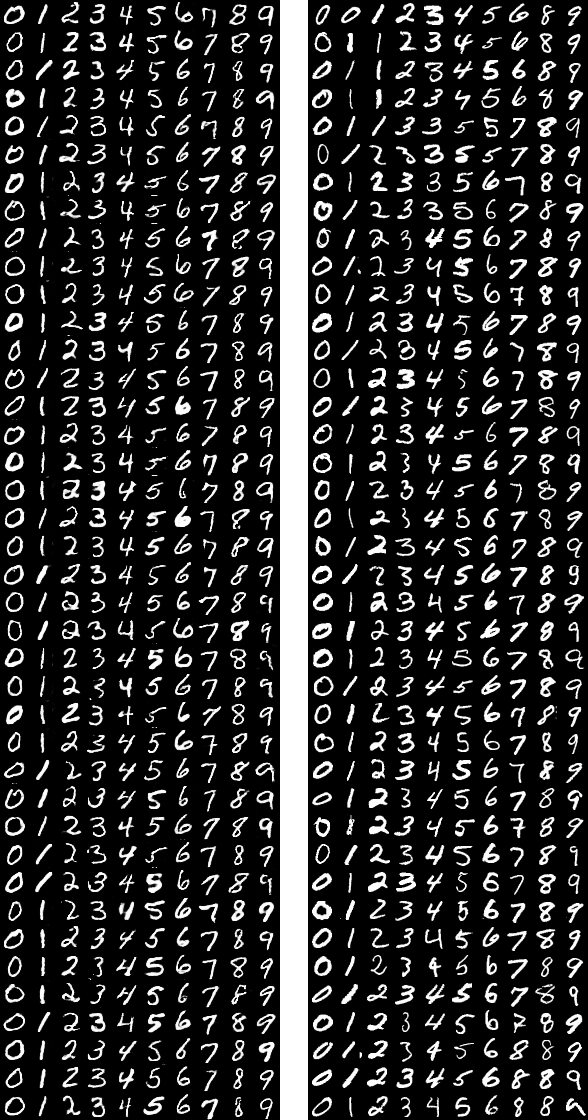 0 1 2 3 4 5 6 7 8 9
0 1 2 3 4 5 6 7 8 9
0 1 2 3 4 5 6 7 8 9
0 1 2 3 4 5 6 7 8 9
0 1 2 3 4 5 6 7 8 9
0 1 2 3 4 5 6 7 8 9
0 1 2 3 4 5 6 7 8 9
0 1 2 3 4 5 6 7 8 9
0 1 2 3 4 5 6 7 8 9
0 1 2 3 4 5 6 7 8 9
0 1 2 3 4 5 6 7 8 9
0 1 2 3 4 5 6 7 8 9
0 1 2 3 4 5 6 7 8 9
0 1 2 3 4 5 6 7 8 9
0 1 2 3 4 5 6 7 8 9
0 1 2 3 4 5 6 7 8 9
0 1 2 3 4 5 6 7 8 9
0 1 2 3 4 5 6 7 8 9
0 1 2 3 4 5 6 7 8 9
0 1 2 3 4 5 6 7 8 9
0 1 2 3 4 5 6 7 8 9
0 1 2 3 4 5 6 7 8 9
0 1 2 3 4 5 6 7 8 9
0 1 2 3 4 5 6 7 8 9
0 1 2 3 4 5 6 7 8 9
0 1 2 3 4 5 6 7 8 9
0 1 2 3 4 5 6 7 8 9
0 1 2 3 4 5 6 7 8 9
0 1 2 3 4 5 6 7 8 9
0 1 2 3 4 5 6 7 8 9
0 1 2 3 4 5 6 7 8 9
0 1 2 3 4 5 6 7 8 9
0 1 2 3 4 5 6 7 8 9
0 1 2 3 4 5 6 7 8 9
0 1 2 3 4 5 6 7 8 9
0 1 2 3 4 5 6 7 8 9
0 1 2 3 4 5 6 7 8 9
0 1 2 3 4 5 6 7 8 9
0 1 2 3 4 5 6 7 8 9
0 1 2 3 4 5 6 7 8 9
0 0 1 2 3 4 5 6 8 9
0 1 1 2 3 4 5 6 8 9
0 1 1 2 3 4 5 6 8 9
0 1 1 2 3 4 5 6 8 9
0 1 1 3 3 5 5 7 8 9
0 1 2 3 3 5 5 7 8 9
0 1 2 3 3 5 6 7 8 9
0 1 2 3 3 5 6 7 8 9
0 1 2 3 4 5 6 7 8 9
0 1 2 3 4 5 6 7 8 9
0 1 2 3 4 5 6 7 8 9
0 1 2 3 4 5 6 7 8 9
0 1 2 3 4 5 6 7 8 9
0 1 2 3 4 5 6 7 8 9
0 1 2 3 4 5 6 7 8 9
0 1 2 3 4 5 6 7 8 9
0 1 2 3 4 5 6 7 8 9
0 1 2 3 4 5 6 7 8 9
0 1 2 3 4 5 6 7 8 9
0 1 2 3 4 5 6 7 8 9
0 1 2 3 4 5 6 7 8 9
0 1 2 3 4 5 6 7 8 9
0 1 2 3 4 5 6 7 8 9
0 1 2 3 4 5 6 7 8 9
0 1 2 3 4 5 6 7 8 9
0 1 2 3 4 5 6 7 8 9
0 1 2 3 4 5 6 7 8 9
0 1 2 3 4 5 6 7 8 9
0 1 2 3 4 5 6 7 8 9
0 1 2 3 4 5 6 7 8 9
0 1 2 3 4 5 6 7 8 9
0 1 2 3 4 5 6 7 8 9
0 1 2 3 4 5 6 7 8 9
0 1 2 3 4 5 6 7 8 9
0 1 2 3 4 5 6 7 8 9
0 1 2 3 4 5 6 7 8 9
0 1 2 3 4 5 6 7 8 9
0 1 2 3 4 5 6 8 8 9
0 1 2 3 4 5 6 8 8 9
0 1 2 3 4 5 6 8 8 8